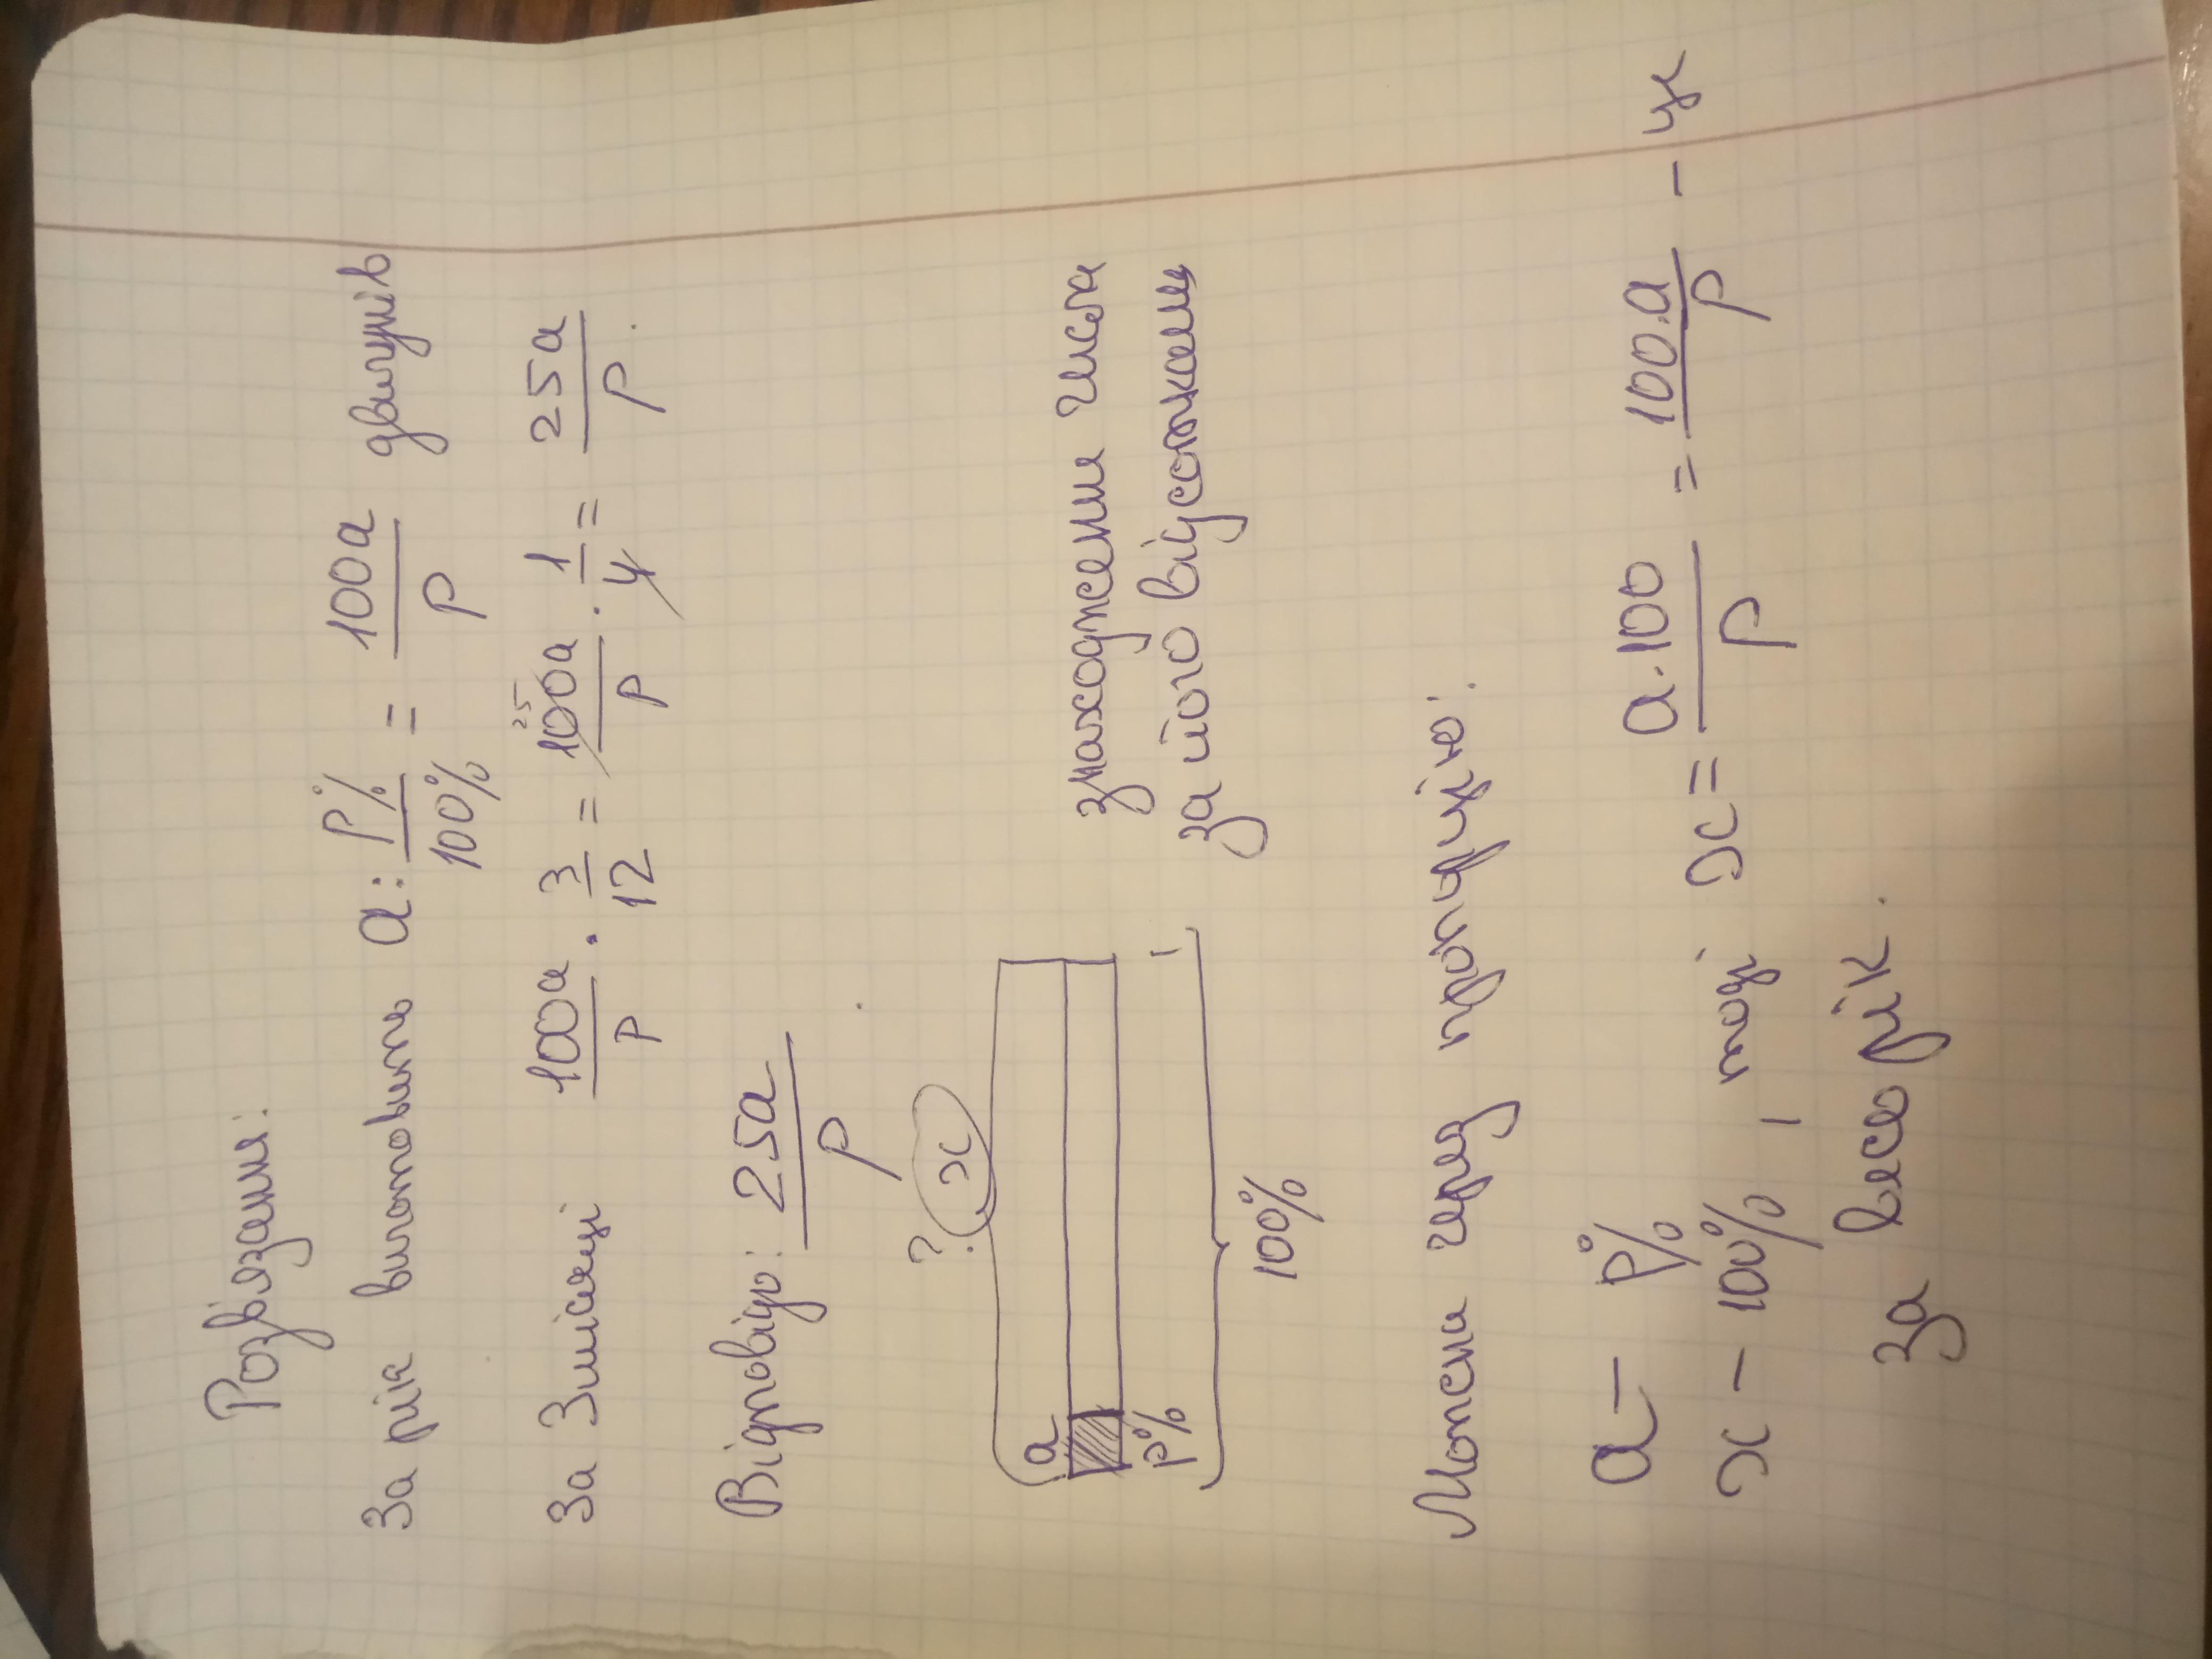 Розв'язання:
За рік виготовить a : P%/100% = 100a/P двигунів
За 3 місяці 100a/P · 3/12 = 100a/P 25 · 1/4 = 25a/P.
Відповідь: 25a/P.
? x
a
P%
100%
знаходження числа
за його відсотками
Можна через пропорцію:
a – P%
x – 100%, тоді x = a·100/P = 100·a/P – це
за весь рік.